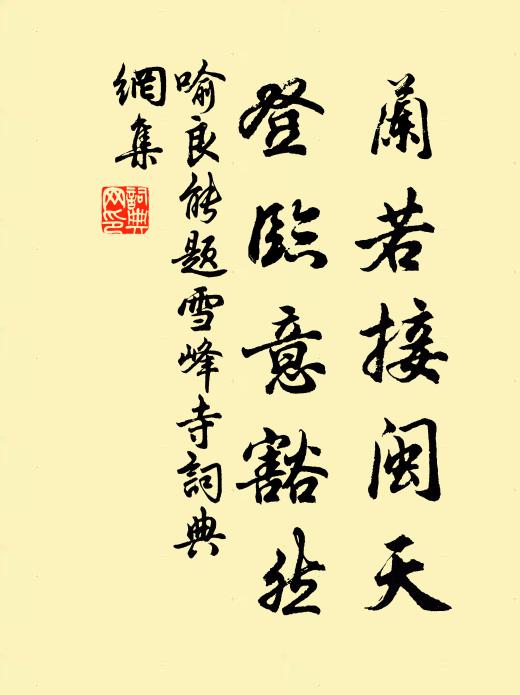 蘭若接闽天
登臨意豁然
喻良能題雪峰寺詞典
網集
詞典
网印